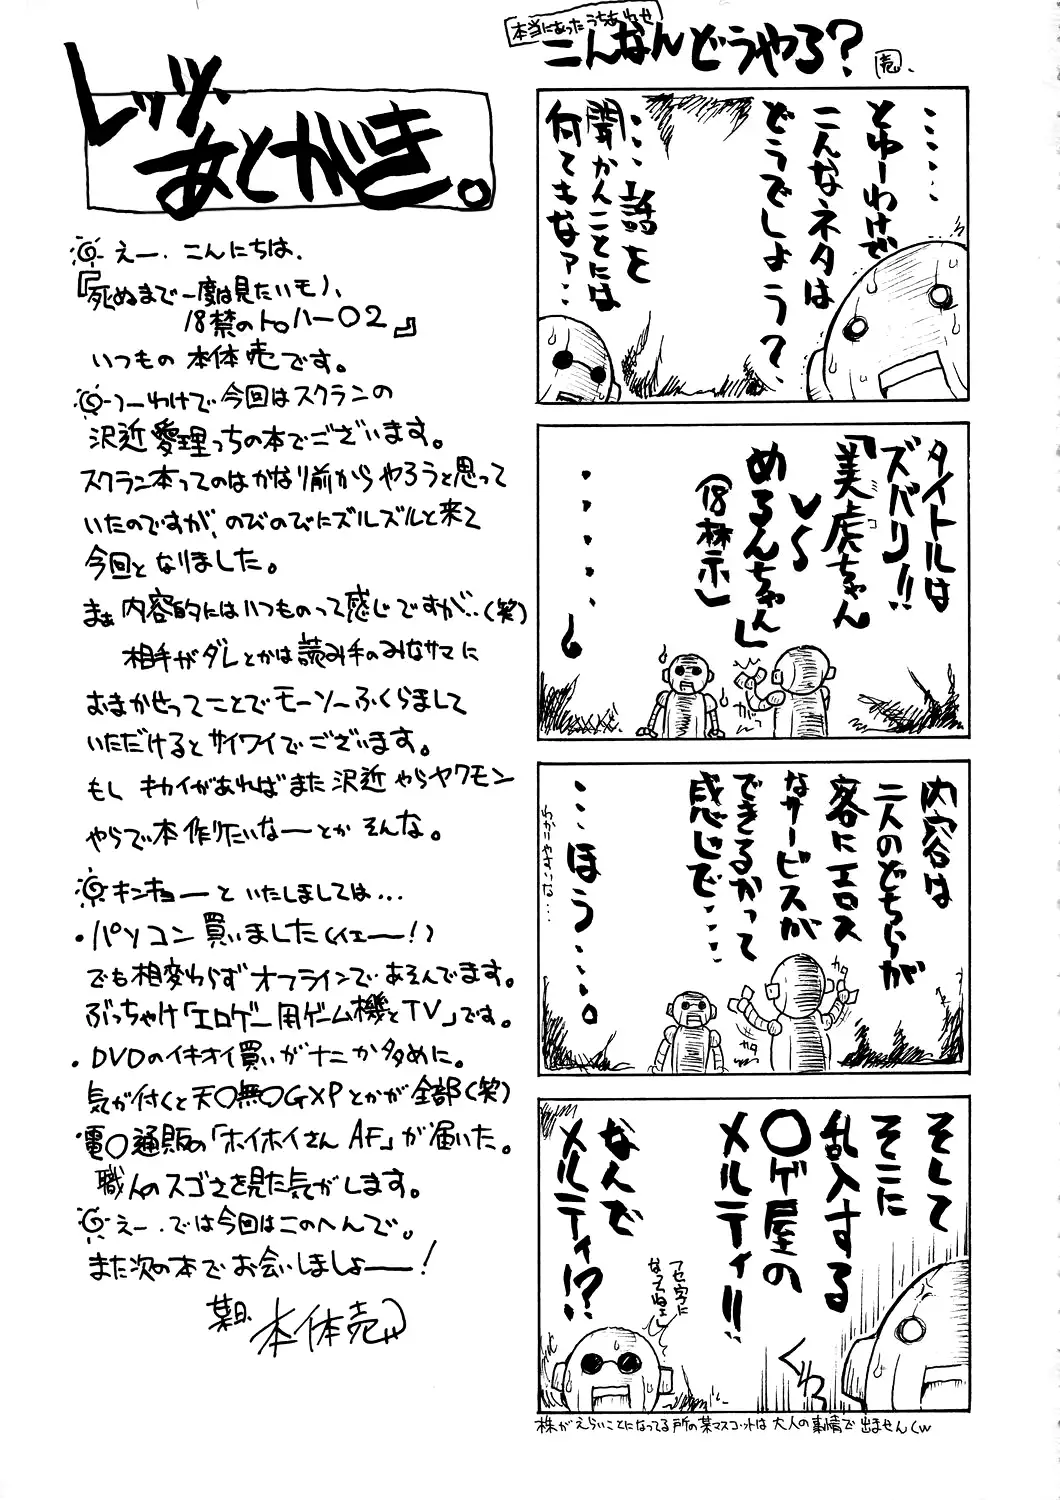 レッツ、
あとがき。
えー、こんにちは、
『死ぬまで一度は見たいモノ、
18禁のトゥハー〇2』
いつもの 本体売です。
つーわけで今回はスクランの
沢近愛理っちの本でございます。
スクラン本ってのはかなり前からやろうと思って
いたのですが、のびのびにズルズルと来て
今回となりました。
まぁ内容的にはいつものって感じですが‥(笑)
相手がダレとかは読み手のみなサマに
おまかせってことでモーソーふくらまして
いただけるとサイワイでございます。
もし キカイがあればまた沢近やらヤクモン
やらで本作りたいなーとか そんな。
キンキョーといたしましては…
・パソコン買いました(イェー!)
でも相変わらずオフラインであそんでます。
ぶっちゃけ「エロゲー用ゲーム機とTV」です。
・DVDのイキオイ買いがナニか多めに。
気が付くと天〇無〇GXPとかが全部(笑)
電〇通販の「ホイホイさんAF」が届いた。
職人のスゴさを見た気がします。
えー、では今回はこのへんで。
また次の本でお会いしましょー!
本体売
本当にあったうちあわせ
こんなんどうやる?
売
・・・・・
とゆーわけで
こんなネタは
どうでしょう?
・・・話を
聞かんことには
何てもなァ・・・
タイトルは
ズバリ!!
「美虎ちゃん
コ
VS
めるんちゃん」
(18禁)
・・・・・
内容は
二人のどちらが
客にエロス
なサービスが
できるかって
感じで・・・
・・・ほう・・・。
わかりやすいな・・・
カタ
カタ
そして
そこに
乱入する
〇ゲ屋の
メルティ!!
なんで
メルティ!?
アセ字に
なってねェし
ぐわっ
株がえらいことになってる所の某マスコットは大人の事情で出ませんくw